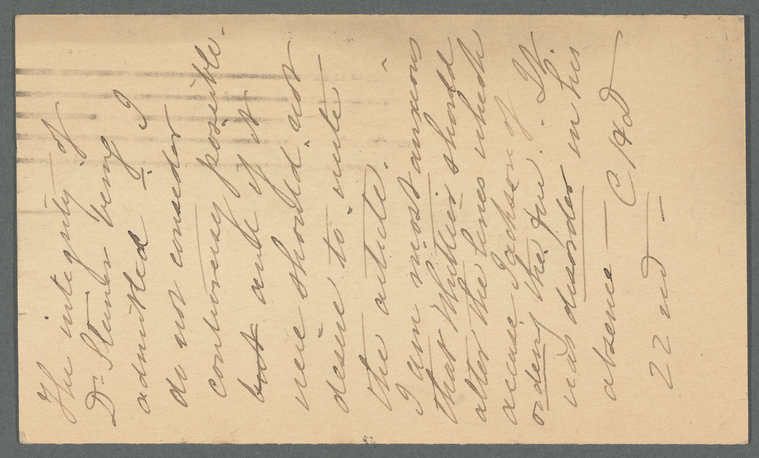 The integrity of
Dr. Steiner being
admitted - I
do not consider
controversy possible.
but only if it
were should not
desire to write
the article.
I am most anxious
that Whittier should
alter the lines which
accuse Jackson of
ordering the fire. It
was disorder in his
absence — CHD
22nd —